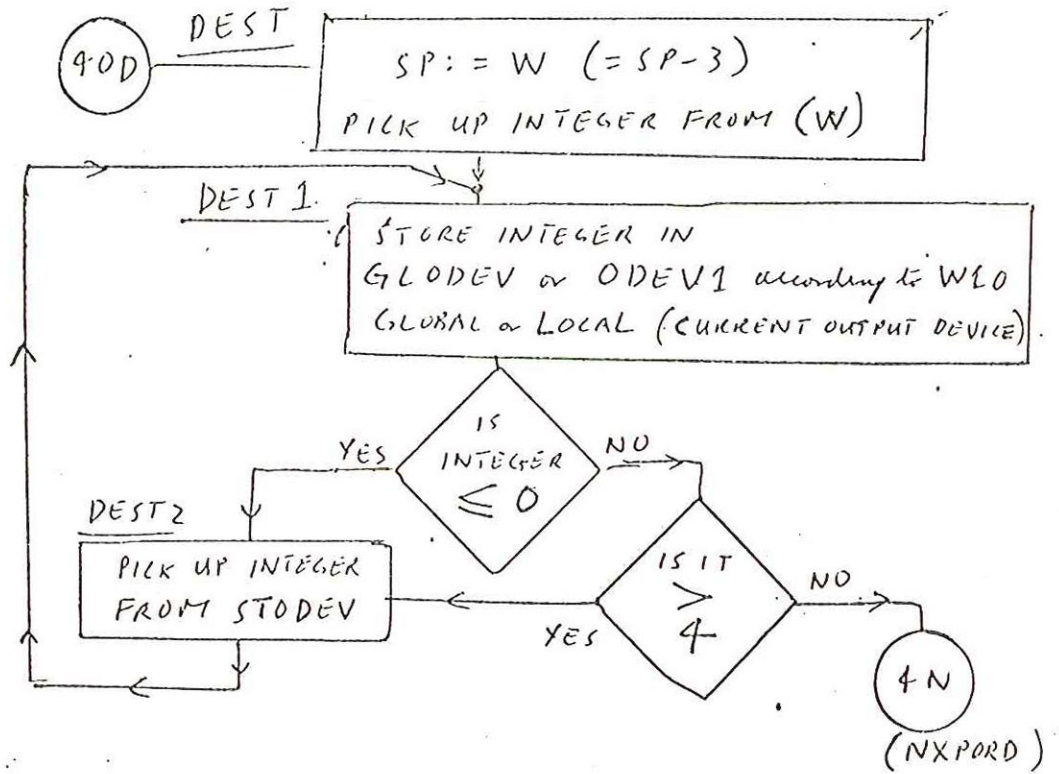 DEST
40D
SP := W (= SP-3)
PICK UP INTEGER FROM (W)
DEST 1.
STORE INTEGER IN
GLODEV or ODEV1 according to W10
GLOBAL or LOCAL (CURRENT OUTPUT DEVICE).
IS
INTEGER
≤ 0
YES
NO
DEST2
PICK UP INTEGER
FROM STODEV
IS IT
>
4
YES
NO
4N
(NXPORD)